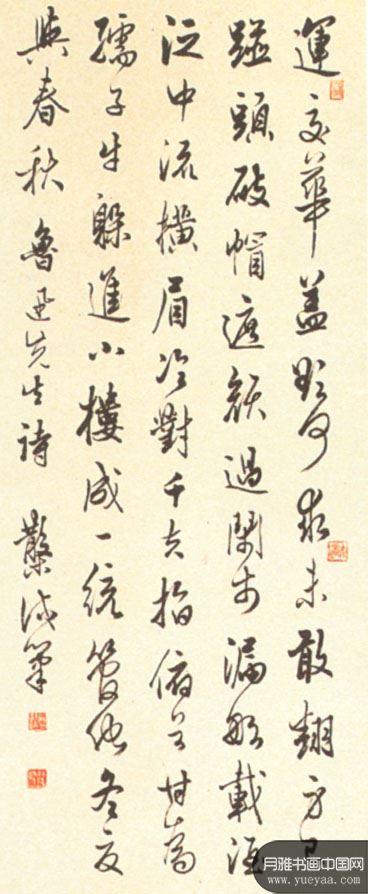 運交華蓋欲何求未敢翻身已
踫頭破帽遮顏過鬧市漏船載酒
泛中流橫眉冷對千夫指俯首甘為
孺子牛躲進小樓成一統管他冬夏
與春秋 魯迅先生詩
月雅书画中国网
www.yueyaa.com